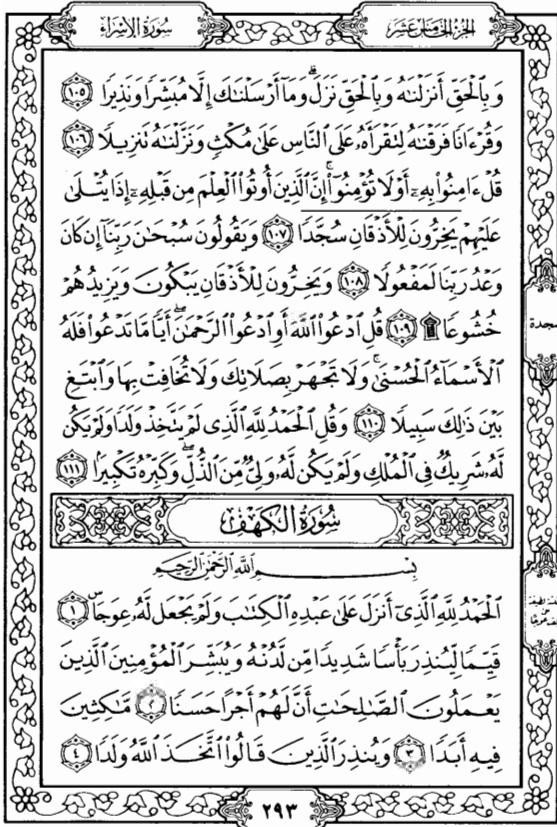 الجزء الخامس عشر
سورة الإسراء
وَبِٱلْحَقِّ أَنزَلْنَٰهُ وَبِٱلْحَقِّ نَزَلَ ۗ وَمَآ أَرْسَلْنَٰكَ إِلَّا مُبَشِّرًا وَنَذِيرًا ١٠٥
وَقُرْءَانًا فَرَقْنَٰهُ لِتَقْرَأَهُۥ عَلَى ٱلنَّاسِ عَلَىٰ مُكْثٍ وَنَزَّلْنَٰهُ تَنزِيلًا ١٠٦
قُلْ ءَامِنُوا۟ بِهِۦٓ أَوْ لَا تُؤْمِنُوٓا۟ ۚ إِنَّ ٱلَّذِينَ أُوتُوا۟ ٱلْعِلْمَ مِن قَبْلِهِۦٓ إِذَا يُتْلَىٰ
عَلَيْهِمْ يَخِرُّونَ لِلْأَذْقَانِ سُجَّدًا ١٠٧ وَيَقُولُونَ سُبْحَٰنَ رَبِّنَآ إِن كَانَ
وَعْدُ رَبِّنَا لَمَفْعُولًا ١٠٨ وَيَخِرُّونَ لِلْأَذْقَانِ يَبْكُونَ وَيَزِيدُهُمْ
خُشُوعًا ۩ ١٠٩ قُلِ ٱدْعُوا۟ ٱللَّهَ أَوِ ٱدْعُوا۟ ٱلرَّحْمَٰنَ ۖ أَيًّا مَّا تَدْعُوا۟ فَلَهُ
ٱلْأَسْمَآءُ ٱلْحُسْنَىٰ ۚ وَلَا تَجْهَرْ بِصَلَاتِكَ وَلَا تُخَافِتْ بِهَا وَٱبْتَغِ
بَيْنَ ذَٰلِكَ سَبِيلًا ١١٠ وَقُلِ ٱلْحَمْدُ لِلَّهِ ٱلَّذِى لَمْ يَتَّخِذْ وَلَدًا وَلَمْ يَكُن
لَّهُۥ شَرِيكٌ فِى ٱلْمُلْكِ وَلَمْ يَكُن لَّهُۥ وَلِىٌّ مِّنَ ٱلذُّلِّ ۖ وَكَبِّرْهُ تَكْبِيرًۢا ١١١
سورة الكهف
بِسْمِ ٱللَّهِ ٱلرَّحْمَٰنِ ٱلرَّحِيمِ
ٱلْحَمْدُ لِلَّهِ ٱلَّذِىٓ أَنزَلَ عَلَىٰ عَبْدِهِ ٱلْكِتَٰبَ وَلَمْ يَجْعَل لَّهُۥ عِوَجَاۜ ١
قَيِّمًا لِّيُنذِرَ بَأْسًا شَدِيدًا مِّن لَّدُنْهُ وَيُبَشِّرَ ٱلْمُؤْمِنِينَ ٱلَّذِينَ
يَعْمَلُونَ ٱلصَّٰلِحَٰتِ أَنَّ لَهُمْ أَجْرًا حَسَنًا ٢ مَّٰكِثِينَ
فِيهِ أَبَدًا ٣ وَيُنذِرَ ٱلَّذِينَ قَالُوا۟ ٱتَّخَذَ ٱللَّهُ وَلَدًا ٤
٢٩٣